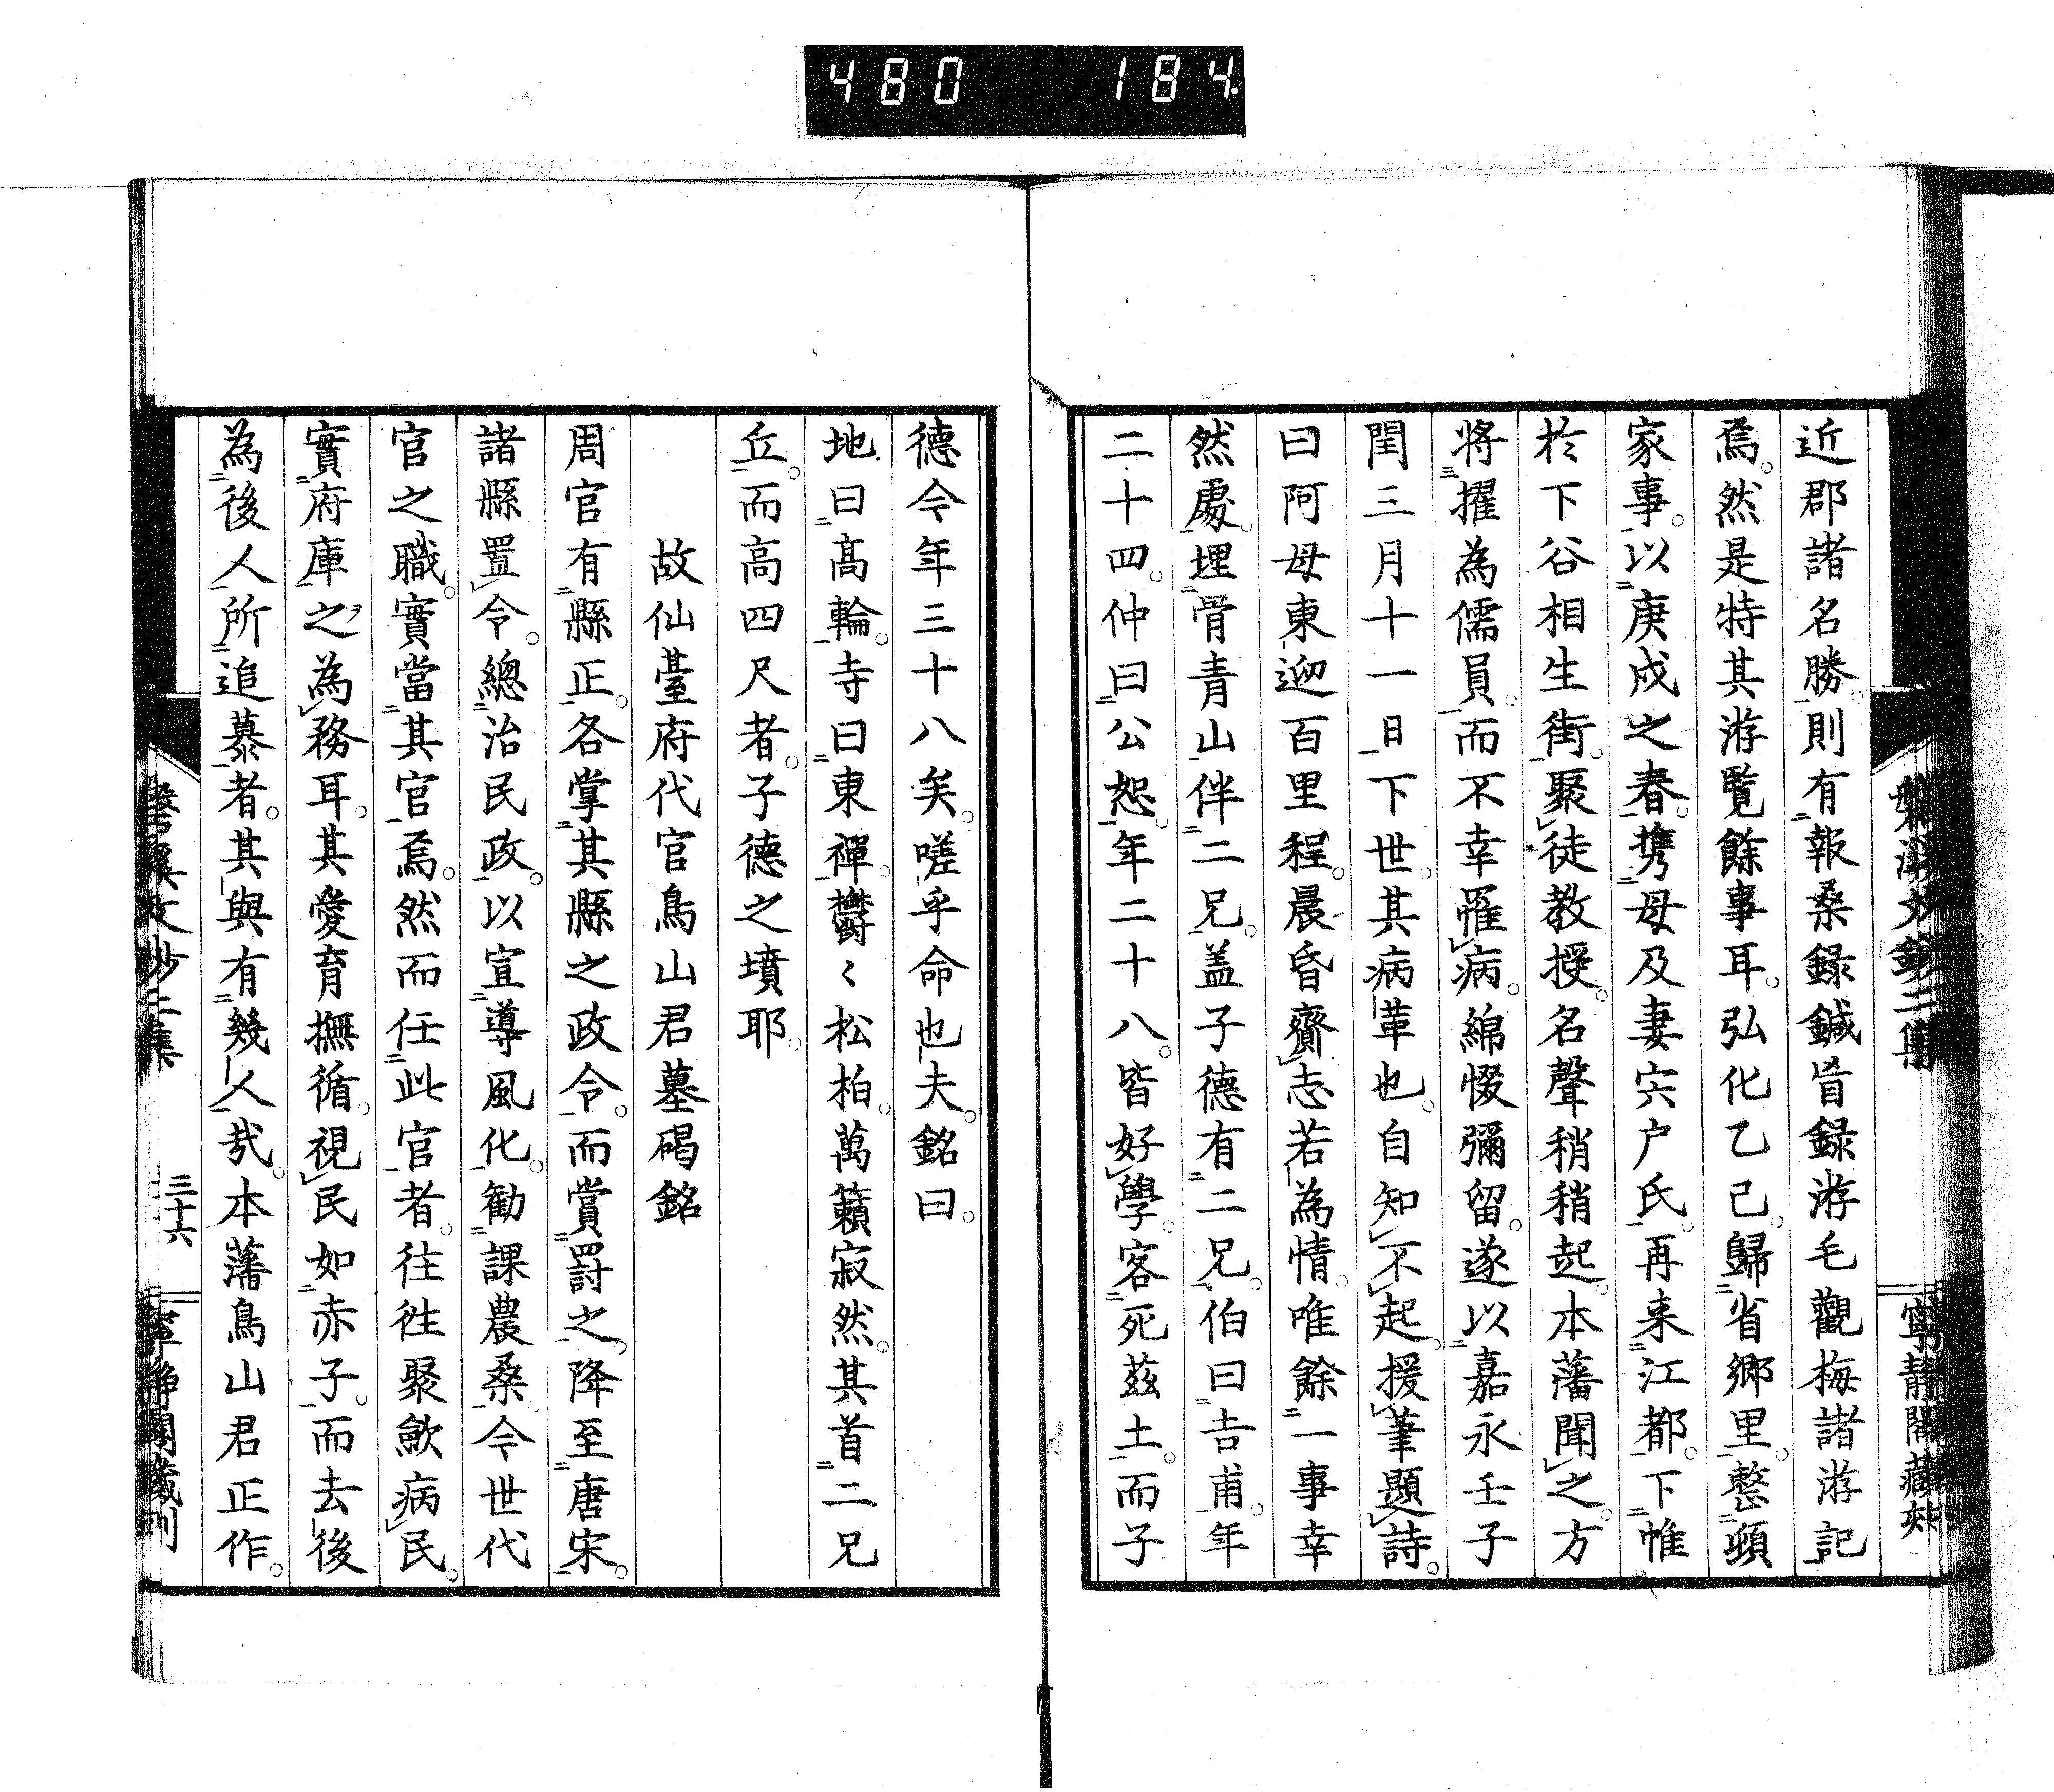 480 184
近郡諸名勝則有報桑録鍼盲録游毛觀梅諸游記
焉然是特其游覽餘事耳弘化乙己歸省鄉里整頓
家事以庚戌之春携母及妻宍户氏再来江都下帷
於下谷相生街聚徒教授名聲稍稍起本藩聞之方
将擢為儒員而不幸罹病綿惙彌留遂以嘉永壬子
閏三月十一日下世其病革也自知不起援筆題詩
曰阿母東迎百里程晨昏齎志若為情唯餘一事幸
然處埋骨青山伴二兄盖子德有二兄伯曰吉甫年
二十四仲曰公恕年二十八皆好學客死茲土而子
德今年三十八矣嗟乎命也夫銘曰
地曰髙輪寺曰東禪欝〻松柏萬籟寂然其首二兄
丘而高四尺者子德之墳耶
故仙臺府代官鳥山君墓碣銘
周官有縣正各掌其縣之政令而賞罸之降至唐宋
諸縣置令總治民政以宣導風化勸課農桑今世代
官之職實當其官焉然而任此官者往徃聚歛病民
實府庫之為務耳其愛育撫循視民如赤子而去後
為後人所追慕者其與有幾人㢤本藩鳥山君正作
磐溪文鈔二集
三十六
寧靜閣藏